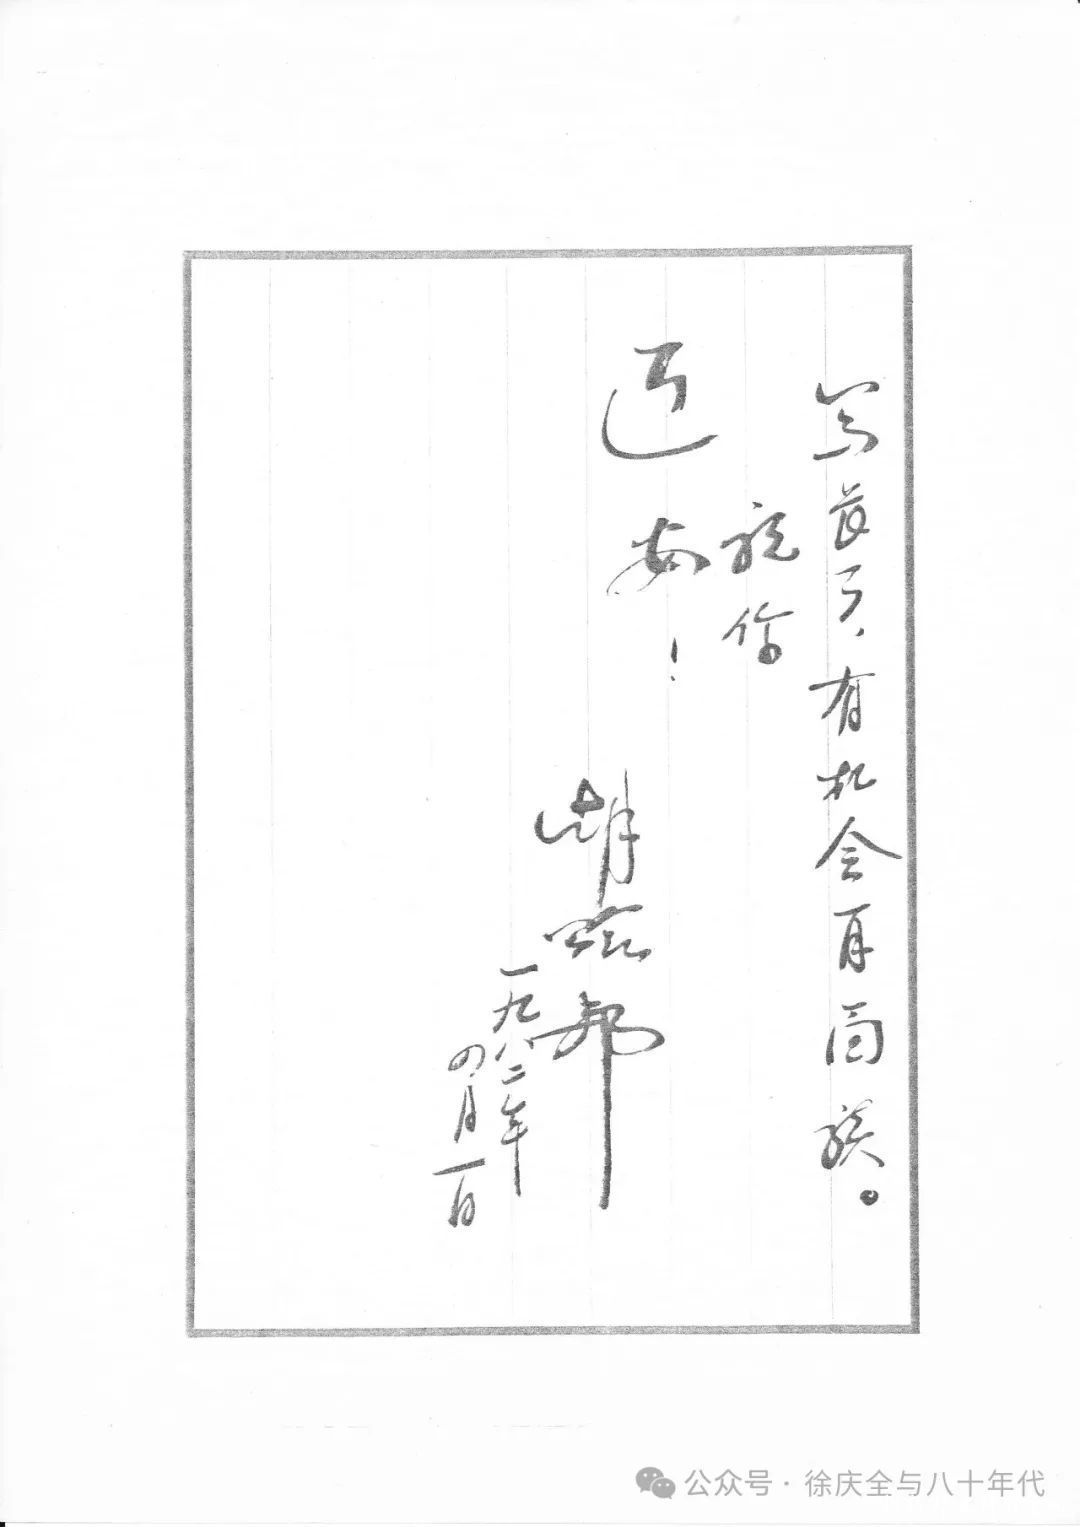 了，有机会再面谈。
祝你
近安！
胡耀邦
一九八二年
四月一日
公众号·徐庆全与八十年代